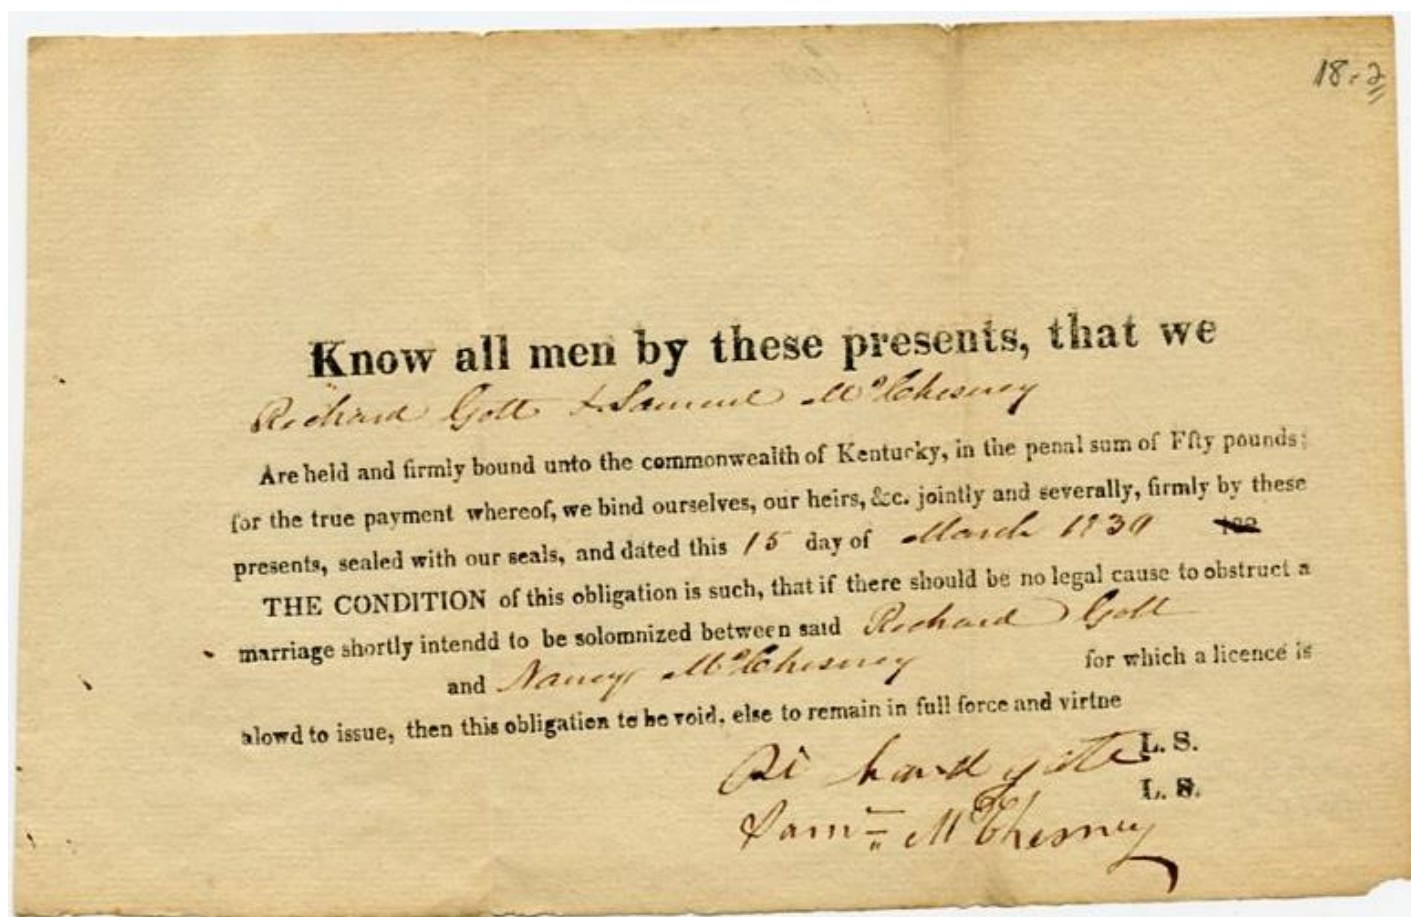 18.2
Know all men by these presents, that we
Richard Gott & Samuel McChesney
Are held and firmly bound unto the commonwealth of Kentucky, in the penal sum of Ffty pounds;
for the true payment whereof, we bind ourselves, our heirs, &c. jointly and severally, firmly by these
presents, sealed with our seals, and dated this 15 day of March 1839
THE CONDITION of this obligation is such, that if there should be no legal cause to obstruct a
marriage shortly intendd to be solomnized between said Richard Gott
and Nancy McChesney for which a licence is
alowd to issue, then this obligation to be void, else to remain in full force and virtne
Richard gott L. S.
L. S.
Sam McChesney